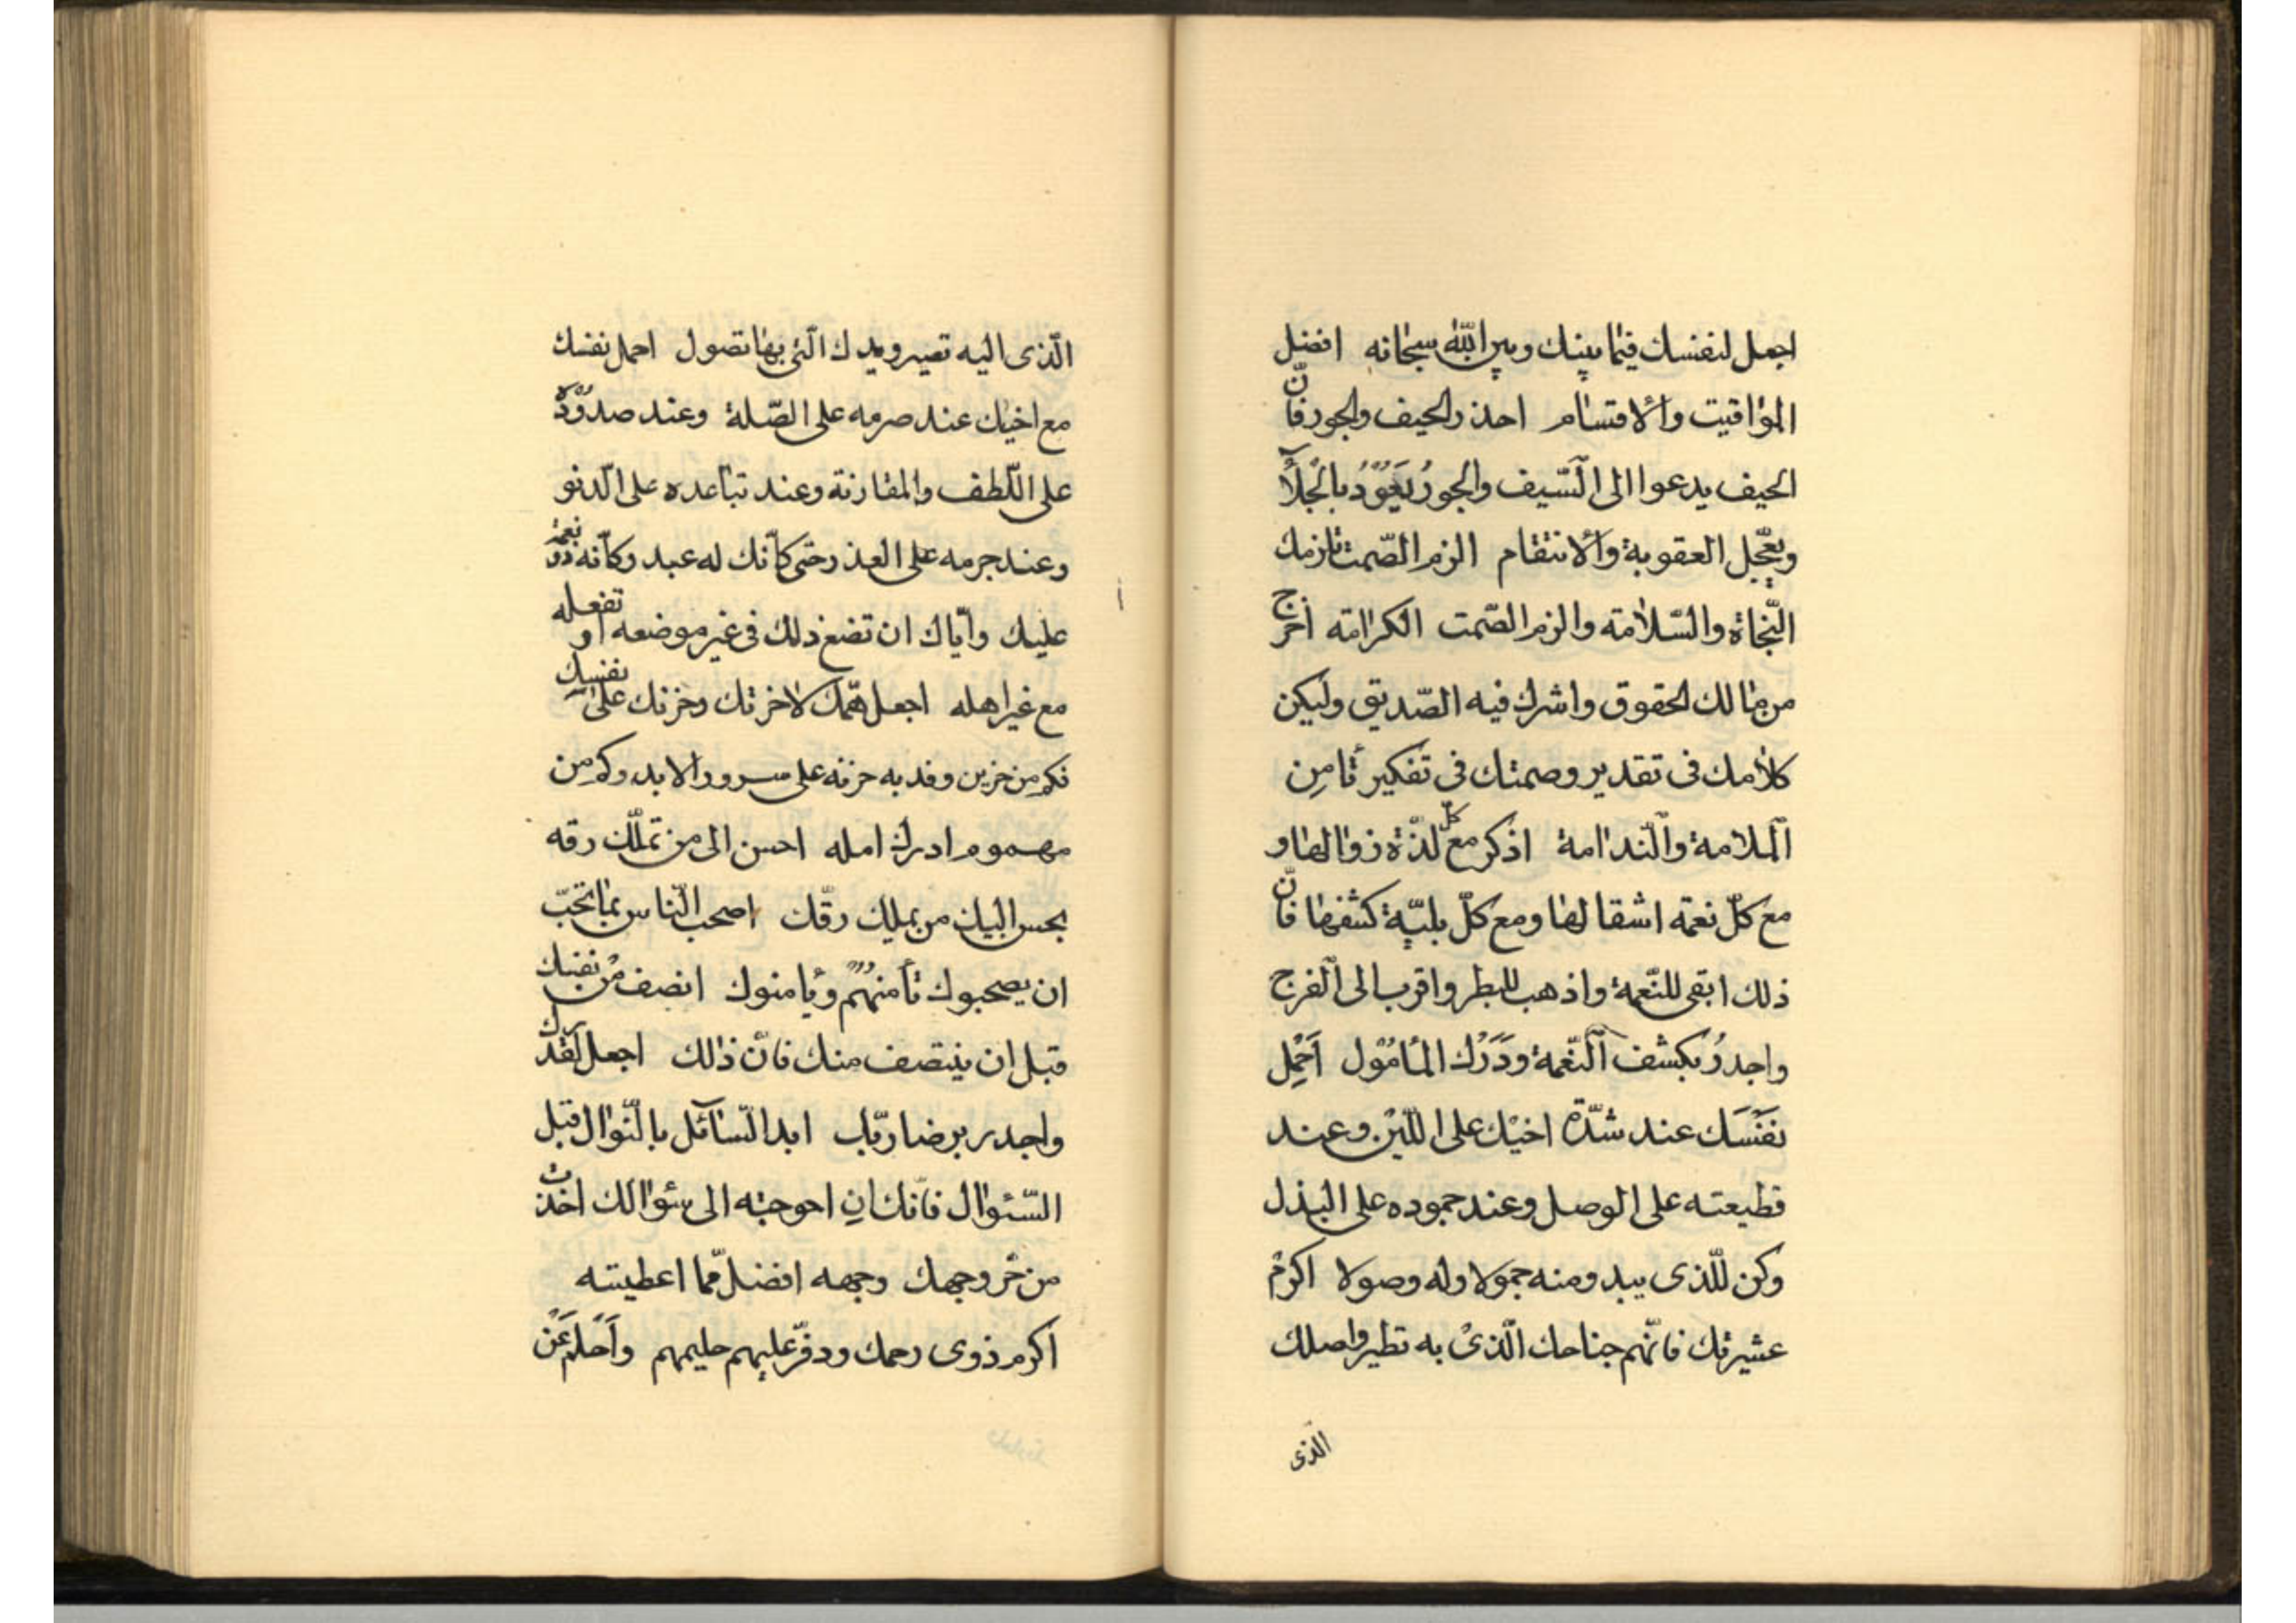 اجعل لنفسك فيما بينك وبين الله سبحانه افضل
المواقيت والاقسام احذر الحيف والجور فانّ
الحيف يدعوا الى السّيف والجورُ يَعُوُدُ بالجَلآء
ويعجّل العقوبة والانتقام الزم الصّمت تلزمك
النّجاة والسّلامة والزم الصّمت الكرامة اخرج
من مالك الحقوق واشرك فيه الصّديق وليكن
كلامك فى تقدير وصمتك فى تفكير تامن
الملامة والنّدامة اذكر مع كلّ لذّة زوالها و
مع كلّ نعمة انتقالها ومع كلّ بليّة كشفها فانّ
ذلك ابقى للنّعمة واذهب للبطر واقرب الى الفرج
واجدرُ بكشف الغّمة ودَرْك المأمول اَحْمِل
نفْسَك عند شدّة اخيْك على اللّين وعند
قطيعته على الوصل وعند جموده على البذل
وكن للّذى يبدو منه حمولا وله وصولا اكرم
عشيرتك فانّهم جناحك الّذىْ به تطير واصلك
الذى
الّذى اليه تصير ويدك الّتى بها تصول احمل نفسك
مع اخيك عند صرمه على الصّلة وعند صدوُدْه
على اللّطف والمقاربة وعند تباعده على الدّنو
وعند جرمه على العذر حتى كانّك له عبد وكانّه ذو نعمة
عليك وايّاك ان تضع ذلك فى غير موضعه او تفعله
مع غير اهله اجعل همّك لاخرتك وحزنك على نفسك
فكم من حزين وفد به حزنه على سرور الابد وكم من
مهموم ادرك امله احسن الى من تملّك رقه
يحسن اليك من يملك رقّك اصحب النّاس بما تحبّ
ان يصحبوك تأمنهُم ويأمنوك انصف من نفسك
قبل ان ينتصف منك فانّ ذالك اجعل لقدرك
واجدر برضا ربّاب ابدا السّآئل بالنّوال قبل
السّئوال فانّك ان احوجته الى سئوالك اخذت
من حرّ وجهك وجهه افضل ممّا اعطيته
اكرم ذوى رحمك ووقّر عليهم حليمهم واَحْلمْ عَنْ